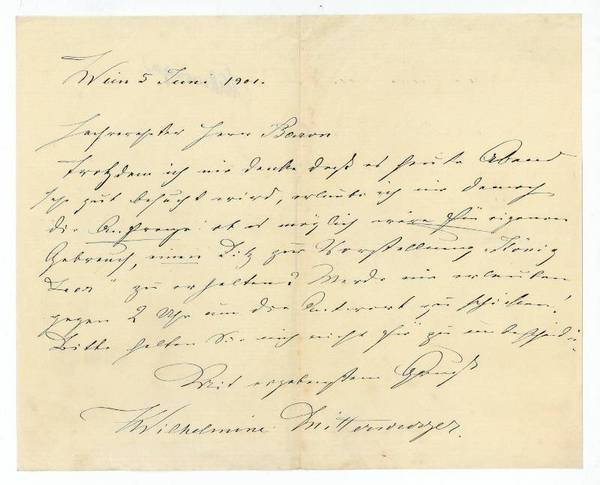 Wien 5 Juni 1901.
Hochverehrter Herr Baron
Trotzdem ich mir denke daß es heute Abend
sehr gut besucht wird, erlaube ich mir dennoch
die Anfrage: ob es möglich wäre für eigenen
Gebrauch, einen Sitz zur Vorstellung „König
Lear" zu erhalten? Werde mir erlauben
gegen 2 Uhr um die Antwort zu schicken!
Bitte halten Sie mich nicht für zu unbescheiden.
Mit ergebenstem Gruß
Wilhelmine Mitterwurzer.